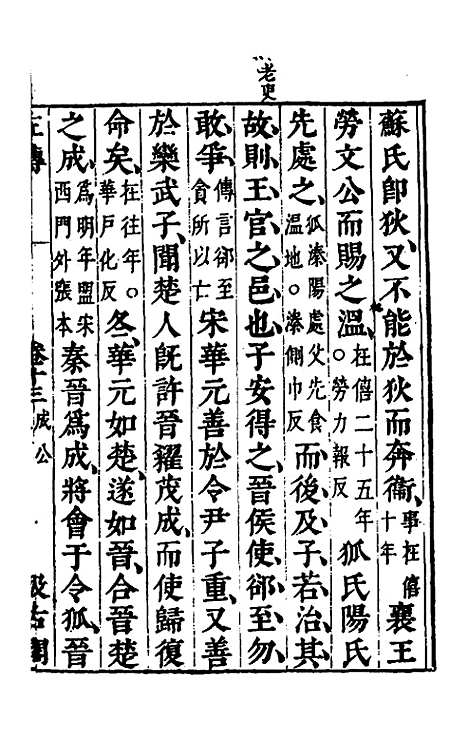 老吏
蘇氏即狄、又不能於狄而奔衞、事在僖十年襄王
勞文公而賜之溫、在僖二十五年○勞力報反狐氏陽氏
先處之、狐溱陽處父先食溫地○溱側巾反而後及子、若治其
故、則王官之邑也、子安得之、晉侯使郤至勿
敢爭、傳言郤至貪所以亡宋華元善於令尹子重、又善
於欒武子、聞楚人旣許晉糴茷成、而使歸復
命矣、在往年○華戸化反冬、華元如楚、遂如晉、合晉楚
之成、爲明年盟宋西門外張本秦晉爲成、將會于令狐、晉
左傳 卷十三 成公 汲古閣